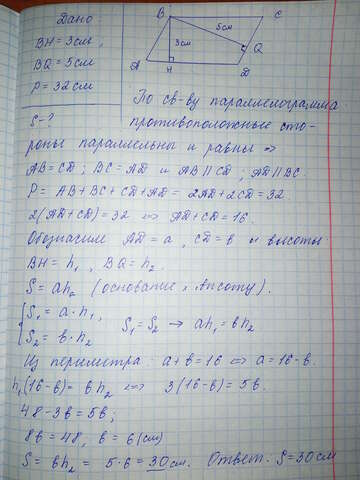 Дано:
BH = 3см,
BQ = 5см
P = 32см
S - ?
B C
5см
3см
Q
A H D
По св-ву параллелограмма
противоположные сто-
роны параллельны и равны ⇒
AB = CD ; BC = AD и AB || CD ; AD || BC
P = AB + BC + CD + AD = 2AD + 2CD = 32.
2(AD + CD) = 32 ⇔ AD + CD = 16.
Обозначим AD = a , CD = b и высоты:
BH = h₁ , BQ = h₂.
S = ah (основание × высоту).
S₁ = a · h₁ ,
S₂ = b · h₂
S₁ = S₂ → ah₁ = bh₂
Из периметра: a + b = 16 ⇔ a = 16 - b.
h₁(16 - b) = bh₂ ⇔ 3(16 - b) = 5b.
48 - 3b = 5b ;
8b = 48 , b = 6 (см)
S = bh₂ = 5 · 6 = 30 см. Ответ: S = 30 см